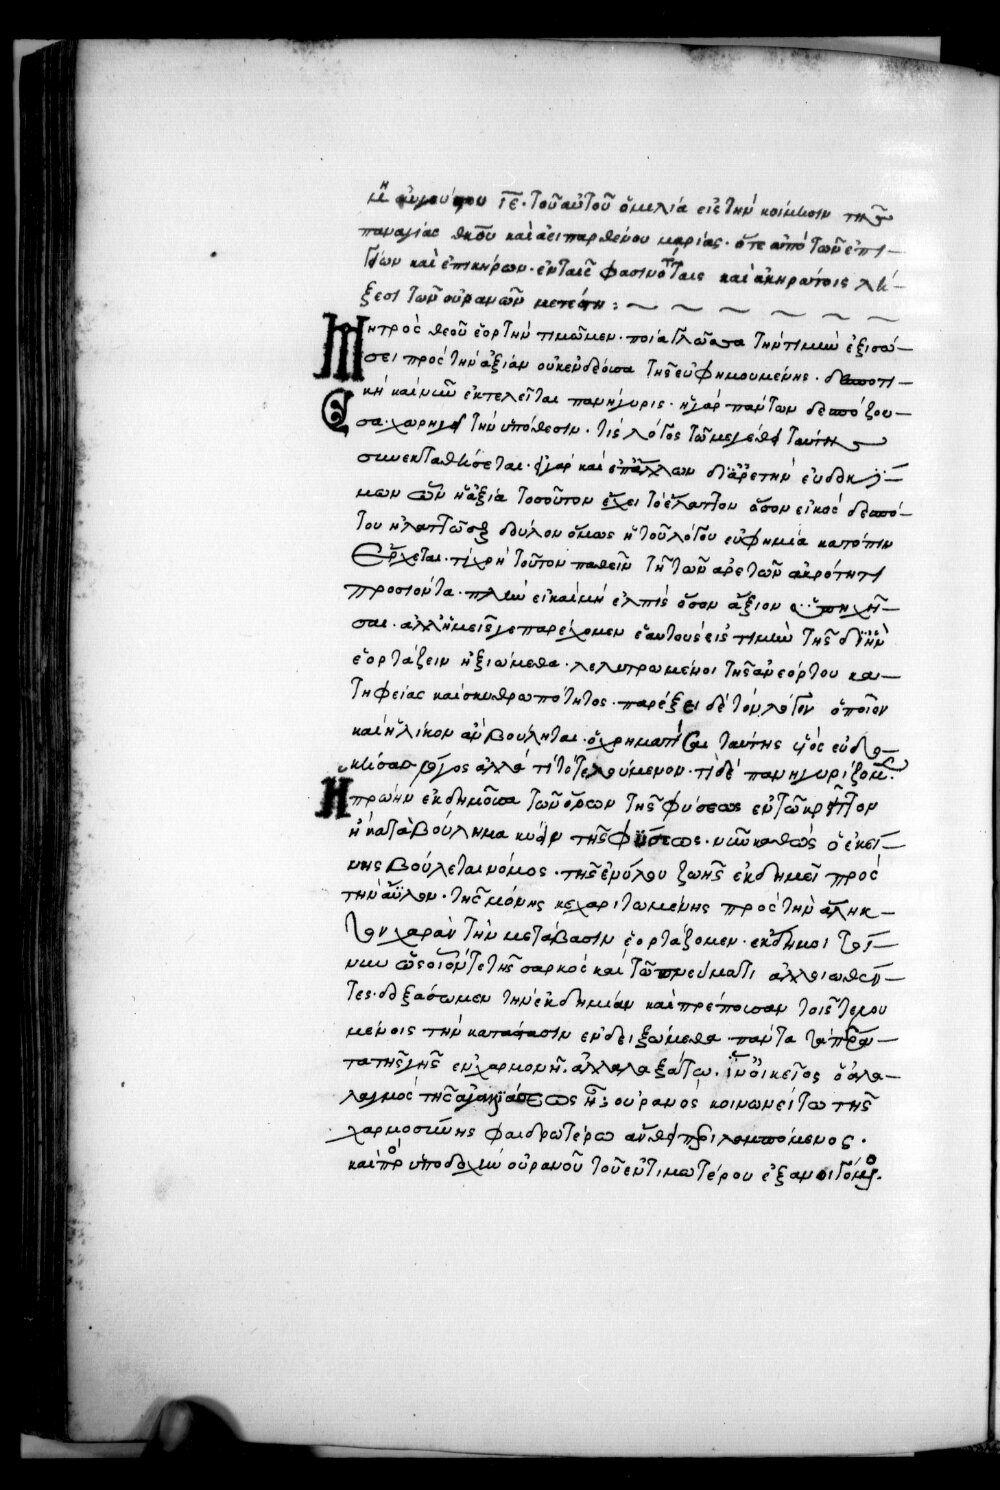 μη αὐγούστου ιε. τοῦ αὐτοῦ ὁμιλία εἰς τὴν κοίμησιν τῆς
παναγίας θκου καὶ ἀειπαρθένου μαρίας. ὅτε ἀπὸ τῶν ἐπι-
γείων καὶ ἐπικήρων. ἐν ταῖς φωτινοτάταις καὶ ἀκηράτοις λή-
ξεσι τῶν οὐρανῶν μετέστη :
Μητρὸς θεοῦ ἑορτὴν τιμῶμεν. ποία γλῶσσα τὴν τιμὴν ἐξισώ-
σει πρὸς τὴν ἀξίαν οὐκ ἐνδέουσα τῆς εὐφημουμένης. δεσποτι-
κὴ καὶ νῦν ἐκτελεῖται πανήγυρις. ἡ γὰρ πάντων δεσπόζου-
σα. χορηγεῖ τὴν ὑπόθεσιν. τίς λόγος τῶ μεγέθει ταύτης
συνεκταθήσεται. εἰ γὰρ καὶ ἐπ' ἄλλων δι' ἀρετὴν εὐδοκί-
μων ὧν ἡ ἀξία τοσοῦτον ἔχει τὸ ἔλαττον ὅσον εἰκὸς δεσπό-
του ἡλαττῶσθαι δοῦλον ὅμως ἡ τοῦ λόγου εὐφημία κατόπιν
ἔρχεται. τί χρὴ τοῦτον παθεῖν τῇ τῶν ἀρετῶν ἀκρότητι
προσιόντα. πλὴν εἰ καὶ μὴ ἐλπὶς ὅσον ἄξιον
σαι. ἀλλ' ἡμεῖς γε παρέχομεν ἑαυτοὺς εἰς τιμὴν τῆς δι' ἣν
ἑορτάζειν ἠξιώμεθα. λελυτρωμένοι τῆς ἀνεόρτου κα-
τηφείας καὶ σκυθρωπότητος. παρέξει δὲ τὸν λόγον ὁποῖον
καὶ ἡλίκον ἂν βούληται. ὁ χρηματίσαι ταύτης υἱὸς εὐδο-
κήσας λόγος ἀλλὰ τί τὸ τελούμενον. τί δὲ πανηγυρίζομεν.
Ἡ πρώην ἐκδημοῦσα τῶν ὅρων τῆς φύσεως ἐν τῶ κρεῖττον
ἢ κατὰ βούλημα κυεῖν τῆς φύσεως. νῦν καθὼς ὁ ἐκεί-
νης βούλεται νόμος. τῆς ἐνύλου ζωῆς ἐκδημεῖ πρὸς
τὴν ἄϋλον. τῆς μόνης κεχαριτωμένης πρὸς τὴν ἄληκ-
τον χαρὰν τὴν μετάβασιν ἑορτάζομεν. ἔκδημοι τοί-
νυν ὡς οἷόν τε τῆς σαρκὸς καὶ τῶ πνεύματι ἀλλοιωθέν-
τες. δοξάσωμεν τὴν ἐκδημίαν καὶ πρέπουσαν τοῖς τελου-
μένοις τὴν κατάστασιν ἐνδειξώμεθα. πάντα τὰ πέρα-
τα τῆς γῆς ἐν χαρμονῇ. ἀλλαλαξάτω. ἵν' ᾖ οἰκεῖος ὁ ἀλα-
λαγμὸς τῆς οὐρανὸς κοινωνείτω τῆς
χαρμοσύνης φαιδρωτέρω ἄνθει περιλαμπόμενος.
καὶ πρὸς ὑποδοχὴν οὐρανοῦ τοῦ ἐντιμωτέρου ἐξανοιγόμενος.